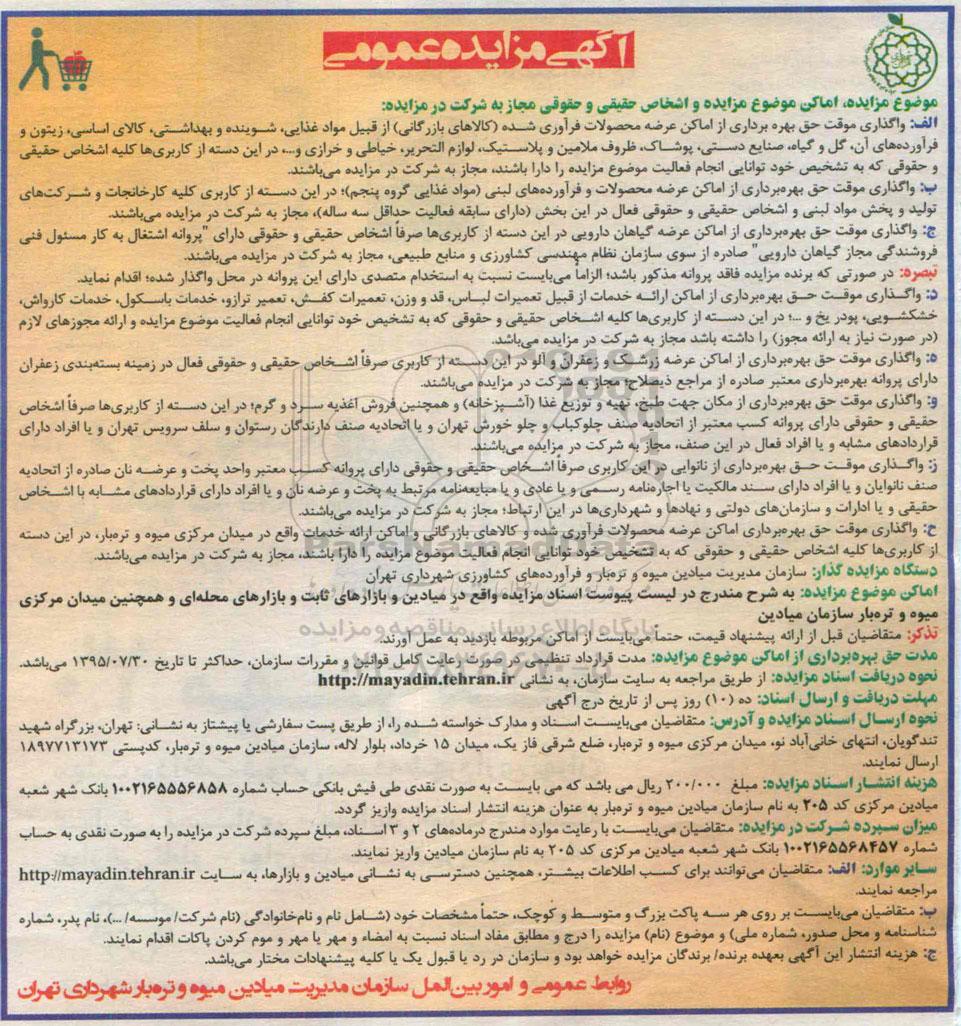 آگهی مزایده عمومی
موضوع مزایده، اماکن موضوع مزایده و اشخاص حقیقی و حقوقی مجاز به شرکت در مزایده:
الف: واگذاری موقت حق بهره برداری از اماکن عرضه محصولات فرآوری شده (کالاهای بازرگانی) از قبیل مواد غذایی، شوینده و بهداشتی، کالای اساسی، زیتون و
فرآورده‌های آن، گل و گیاه، صنایع دستی، پوشاک، ظروف ملامین و پلاستیک، لوازم التحریر، خیاطی و خرازی و...، در این دسته از کاربری‌ها کلیه اشخاص حقیقی
و حقوقی که به تشخیص خود توانایی انجام فعالیت موضوع مزایده را دارا باشند، مجاز به شرکت در مزایده می‌باشند.
ب: واگذاری موقت حق بهره‌برداری از اماکن عرضه محصولات و فرآورده‌های لبنی (مواد غذایی گروه پنجم)؛ در این دسته از کاربری کلیه کارخانجات و شرکت‌های
تولید و پخش مواد لبنی و اشخاص حقیقی و حقوقی فعال در این بخش (دارای سابقه فعالیت حداقل سه ساله)، مجاز به شرکت در مزایده می‌باشند.
ج: واگذاری موقت حق بهره‌برداری از اماکن عرضه گیاهان دارویی در این دسته از کاربری‌ها صرفاً اشخاص حقیقی و حقوقی دارای "پروانه اشتغال به کار مسئول فنی
فروشندگی مجاز گیاهان دارویی" صادره از سوی سازمان نظام مهندسی کشاورزی و منابع طبیعی، مجاز به شرکت در مزایده می‌باشند.
تبصره: در صورتی که برنده مزایده فاقد پروانه مذکور باشد؛ الزاماً می‌بایست نسبت به استخدام متصدی دارای این پروانه در محل واگذار شده؛ اقدام نماید.
د: واگذاری موقت حق بهره‌برداری از اماکن ارائه خدمات از قبیل تعمیرات لباس، قد و وزن، تعمیرات کفش، تعمیر ترازو، خدمات باسکول، خدمات کارواش،
خشکشویی، پودر یخ و ...؛ در این دسته از کاربری‌ها کلیه اشخاص حقیقی و حقوقی که به تشخیص خود توانایی انجام فعالیت موضوع مزایده و ارائه مجوزهای لازم
(در صورت نیاز به ارائه مجوز) را داشته باشد مجاز به شرکت در مزایده می‌باشد.
ه: واگذاری موقت حق بهره‌برداری از اماکن عرضه زرشک و زعفران و آلو در این دسته از کاربری صرفاً اشخاص حقیقی و حقوقی فعال در زمینه بسته‌بندی زعفران
دارای پروانه بهره‌برداری معتبر صادره از مراجع ذیصلاح؛ مجاز به شرکت در مزایده می‌باشند.
و: واگذاری موقت حق بهره‌برداری از مکان جهت طبخ، تهیه و توزیع غذا (آشپزخانه) و همچنین فروش اغذیه سرد و گرم؛ در این دسته از کاربری‌ها صرفاً اشخاص
حقیقی و حقوقی دارای پروانه کسب معتبر از اتحادیه صنف چلوکباب و چلو خورش تهران و یا اتحادیه صنف دارندگان رستوان و سلف سرویس تهران و یا افراد دارای
قراردادهای مشابه و یا افراد فعال در این صنف، مجاز به شرکت در مزایده می‌باشند.
ز: واگذاری موقت حق بهره‌برداری از نانوایی در این کاربری صرفاً اشخاص حقیقی و حقوقی دارای پروانه کسب معتبر واحد پخت و عرضه نان صادره از اتحادیه
صنف نانوایان و یا افراد دارای سند مالکیت یا اجاره‌نامه رسمی و یا عادی و یا مبایعه‌نامه مرتبط به پخت و عرضه نان و یا افراد دارای قراردادهای مشابه با اشخاص
حقیقی و یا ادارات و سازمان‌های دولتی و نهادها و شهرداری‌ها در این ارتباط؛ مجاز به شرکت در مزایده می‌باشند.
ح: واگذاری موقت حق بهره‌برداری اماکن عرضه محصولات فرآوری شده و کالاهای بازرگانی و اماکن ارائه خدمات واقع در میدان مرکزی میوه و تره‌بار، در این دسته
از کاربری‌ها کلیه اشخاص حقیقی و حقوقی که به تشخیص خود توانایی انجام فعالیت موضوع مزایده را دارا باشند، مجاز به شرکت در مزایده می‌باشند.
دستگاه مزایده گذار: سازمان مدیریت میادین میوه و تره‌بار و فرآورده‌های کشاورزی شهرداری تهران
اماکن موضوع مزایده: به شرح مندرج در لیست پیوست اسناد مزایده واقع در میادین و بازارهای ثابت و بازارهای محله‌ای و همچنین میدان مرکزی
میوه و تره‌بار سازمان میادین
تذکر: متقاضیان قبل از ارائه پیشنهاد قیمت، حتماً می‌بایست از اماکن مربوطه بازدید به عمل آورند.
مدت حق بهره‌برداری از اماکن موضوع مزایده: مدت قرارداد تنظیمی در صورت رعایت کامل قوانین و مقررات سازمان، حداکثر تا تاریخ ۱۳۹۵/۰۷/۳۰ می‌باشد.
نحوه دریافت اسناد مزایده: از طریق مراجعه به سایت سازمان، به نشانی http://mayadin.tehran.ir
مهلت دریافت و ارسال اسناد: ده (۱۰) روز پس از تاریخ درج آگهی
نحوه ارسال اسناد مزایده و آدرس: متقاضیان می‌بایست اسناد و مدارک خواسته شده را، از طریق پست سفارشی یا پیشتاز به نشانی: تهران، بزرگراه شهید
تندگویان، انتهای خانی‌آباد نو، میدان مرکزی میوه و تره‌بار، ضلع شرقی فاز یک، میدان ۱۵ خرداد، بلوار لاله، سازمان میادین میوه و تره‌بار، کدپستی ۱۸۹۷۷۱۳۱۷۳
ارسال نمایند.
هزینه انتشار اسناد مزایده: مبلغ ۲۰۰/۰۰۰ ریال می باشد که می بایست به صورت نقدی طی فیش بانکی حساب شماره ۱۰۰۲۱۶۵۵۵۶۸۵۸ بانک شهر شعبه
میادین مرکزی کد ۲۰۵ به نام سازمان میادین میوه و تره‌بار به عنوان هزینه انتشار اسناد مزایده واریز گردد.
میزان سپرده شرکت در مزایده: متقاضیان می‌بایست با رعایت موارد مندرج درماده‌های ۲ و ۳ اسناد، مبلغ سپرده شرکت در مزایده را به صورت نقدی به حساب
شماره ۱۰۰۲۱۶۵۵۶۸۴۵۷ بانک شهر شعبه میادین مرکزی کد ۲۰۵ به نام سازمان میادین واریز نمایند.
سایر موارد: الف: متقاضیان می‌توانند برای کسب اطلاعات بیشتر، همچنین دسترسی به نشانی میادین و بازارها، به سایت http://mayadin.tehran.ir
مراجعه نمایند.
ب: متقاضیان می‌بایست بر روی هر سه پاکت بزرگ و متوسط و کوچک، حتماً مشخصات خود (شامل نام و نام‌خانوادگی (نام شرکت/ موسسه/ ...)، نام پدر، شماره
شناسنامه و محل صدور، شماره ملی) و موضوع (نام) مزایده را درج و مطابق مفاد اسناد نسبت به امضاء و مهر یا مهر و موم کردن پاکات اقدام نمایند.
ج: هزینه انتشار این آگهی بعهده برنده/ برندگان مزایده خواهد بود و سازمان در رد یا قبول یک یا کلیه پیشنهادات مختار می‌باشد.
روابط عمومی و امور بین‌الملل سازمان مدیریت میادین میوه و تره‌بار شهرداری تهران
پایگاه اطلاع رسانی مناقصه و مزایده